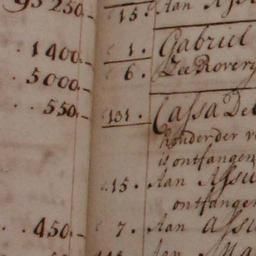 95250.-
15. Aan
1400.- 1. Gabriel
5000.- 6. Zee Rovery
550.- 131. Cassa De
honderder
is ontfangen
15. Aan Assu
ontfangen
450.- 7. Aan assu
Aan